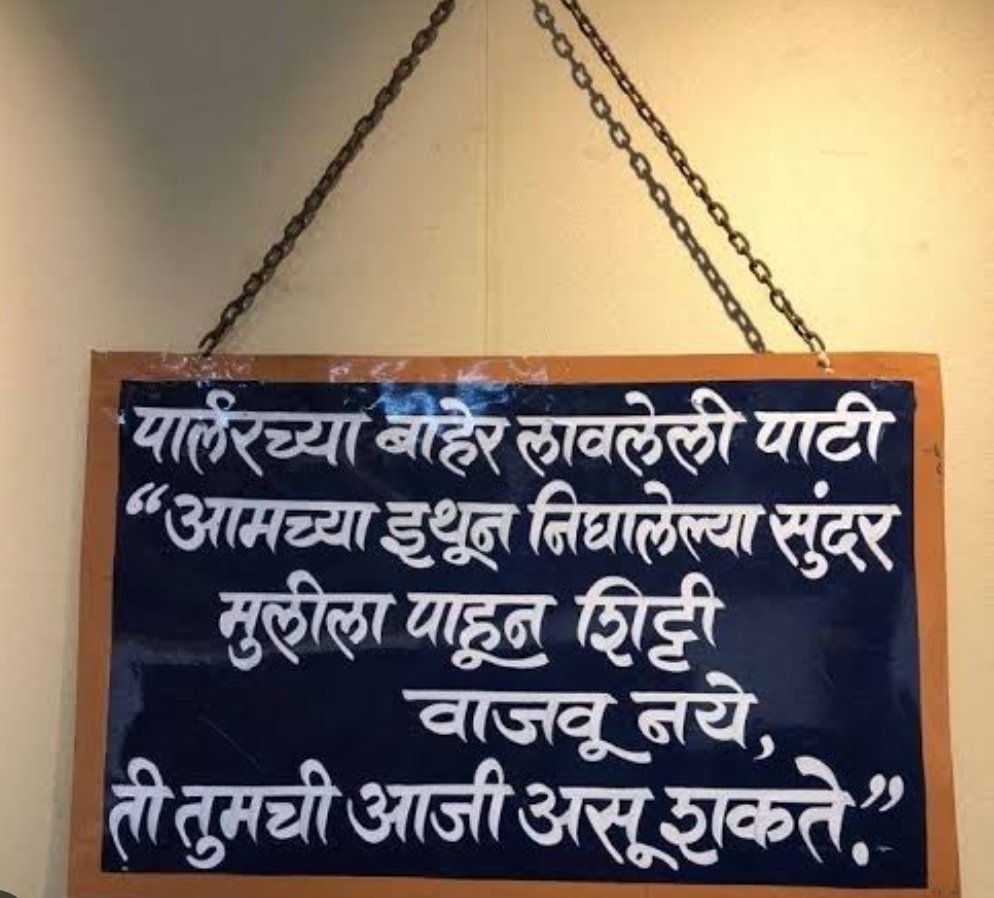 पार्लरच्या बाहेर लावलेली पाटी
“आमच्या इथून निघालेल्या सुंदर
मुलीला पाहून शिट्टी
वाजवू नये,
ती तुमची आजी असू शकते.”